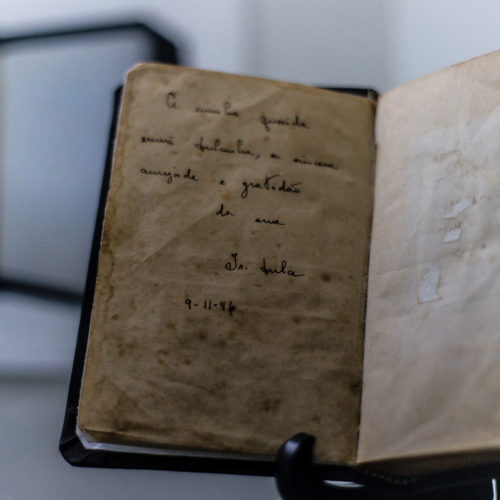 A minha querida
irmã Dulcinha, a sincera
amizade e gratidão
da sua
Ir. Dulce
9-11-46